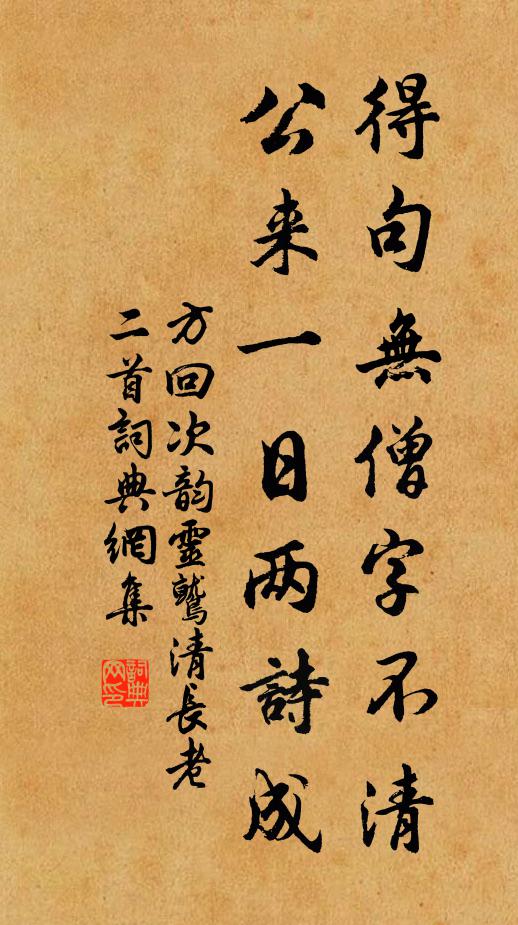 得句無僧字不清
公来一日两詩成
方回次韵靈鷲清長老
二首詞典網集
詞典网印